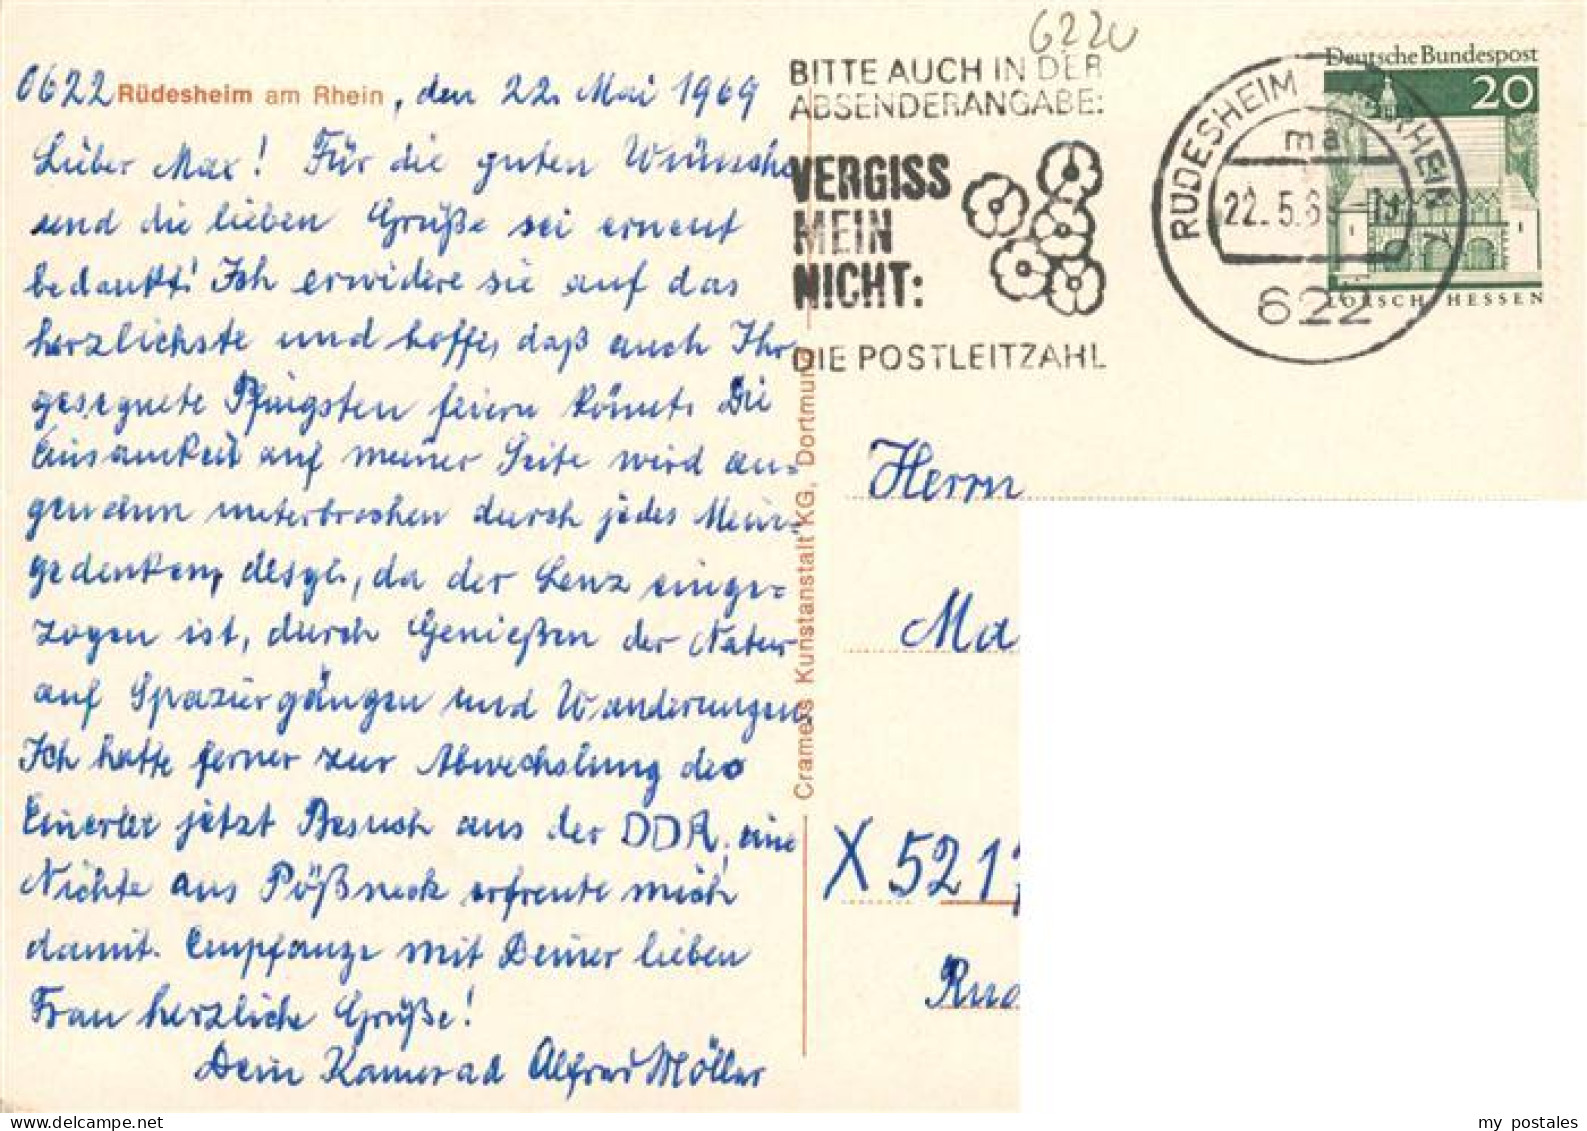 6220
0622 Rüdesheim am Rhein, den 22. Mai 1969
Lieber Max! Für die guten Wünsche
und die lieben Grüße sei erneut
bedankt! Ich erwidere sie auf das
herzlichste und hoffe, daß auch Ihr
gesegnete Pfingsten feiern könnt. Die
Einsamkeit auf meiner Seite wird an-
genehm unterbrochen durch jedes Mein-
gedenken, desgl., da der Lenz einge-
zogen ist, durch Genießen der Natur
auf Spaziergängen und Wanderungen.
Ich hatte ferner zur Abwechslung des
Einerlei jetzt Besuch aus der DDR, eine
Nichte aus Pößneck erfreute mich
damit. Empfange mit Deiner lieben
Frau herzliche Grüße!
Dein Kamerad Alfred Möller
BITTE AUCH IN DER
ABSENDERANGABE:
VERGISS
MEIN
NICHT:
DIE POSTLEITZAHL
RÜDESHEIM RHEIN 1
ma
22. 5.6
622
Deutsche Bundespost
20
LORSCH/HESSEN
Herrn
Ma
X 521
Rud
Cramers Kunstanstalt KG, Dortmund
my postales